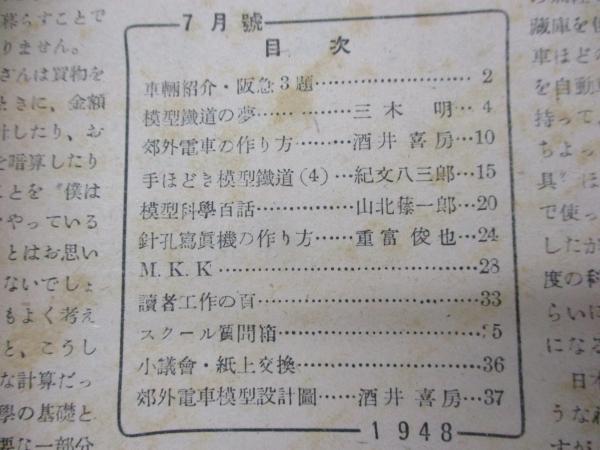 7月號
目次
車輛紹介・阪急3題……2
模型鐵道の夢……三木 明…4
郊外電車の作り方……酒井喜房…10
手ほどき模型鐵道(4)…紀文八三郎…15
模型科學百話……山北藤一郎…20
針孔寫眞機の作り方……重富俊也…24
M.K.K……28
讀者工作の頁……33
スクール質問箱……35
小議會・紙上交換……36
郊外電車模型設計圖……酒井喜房…37
1948
暮らすことで
りません。
さんは買物を
ときに、金額
計したり、お
を暗算したり
ことを〝僕は
やっている
とはお思い
ないでしょ
もよく考え
と、こうし
な計算だっ
學の基礎と
要な一部分
藏庫を使
車ほどの
を自動車
持って、
ちょっ
具〞ほ
で使っ
したが
度の科
らいに
になる
日本
うな
すが